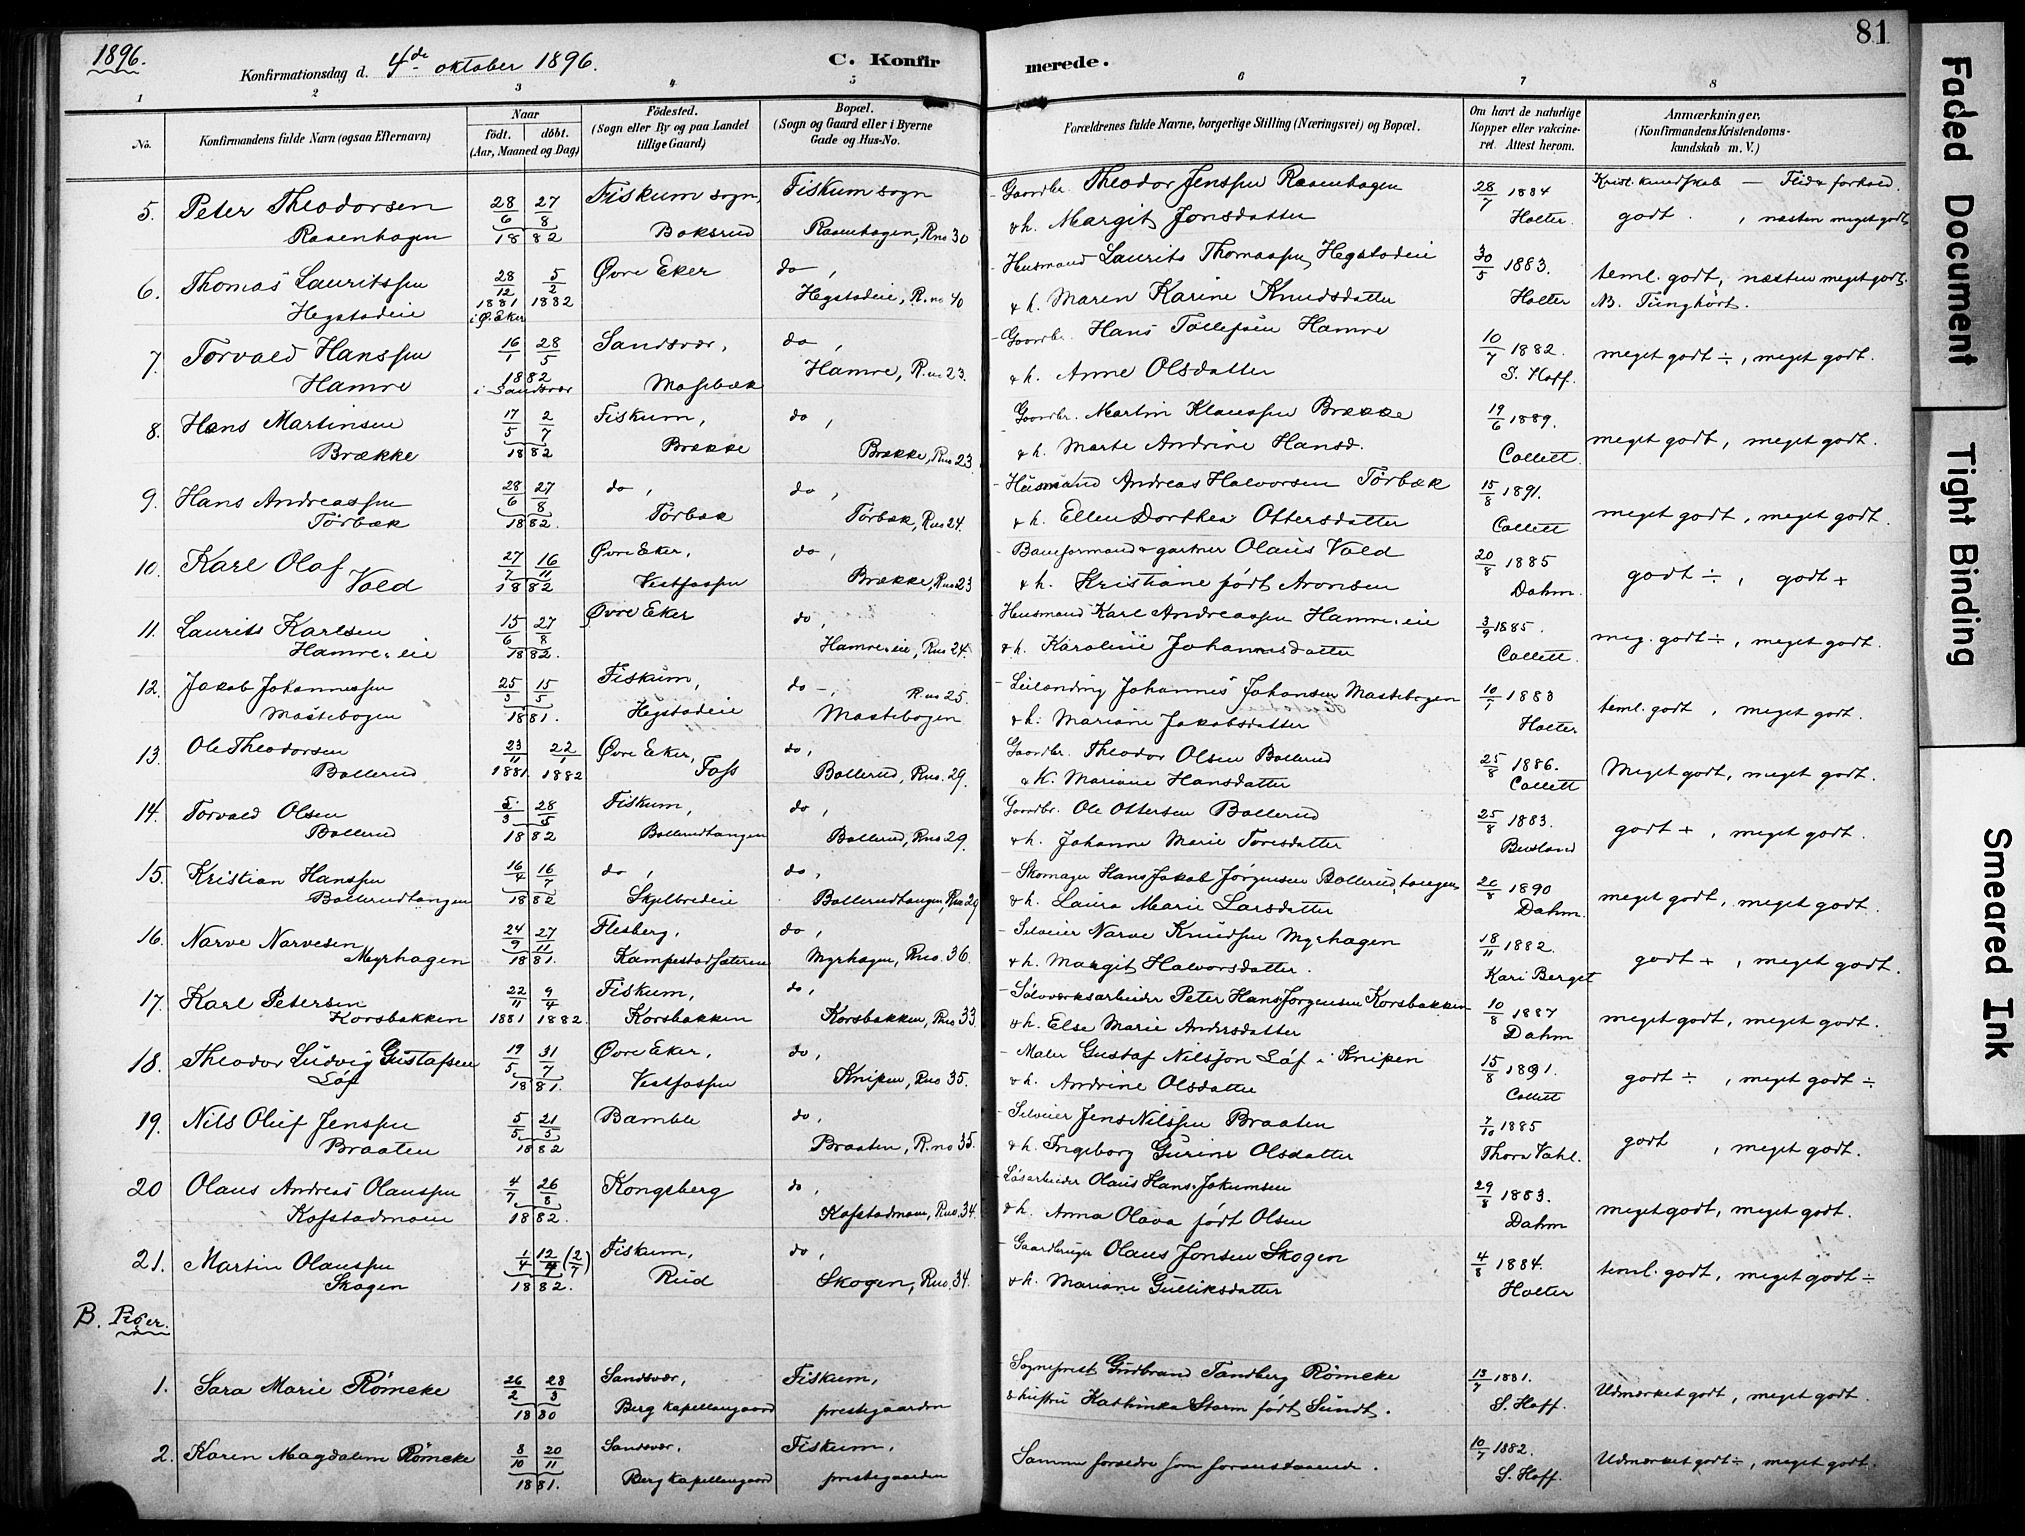 81
1896.
Konfirmationsdag d. 4de oktober 1896.
C. Konfirmerede.
1 2 3 4 5 6 7 8
No.
Konfirmandens fulde Navn (ogsaa Efternavn)
Naar
født. døbt.
(Aar, Maaned og Dag)
Fødested.
(Sogn eller By og paa Landet
tillige Gaard)
Bopæl.
(Sogn og Gaard eller i Byerne
Gade og Hus-No.
Forældrenes fulde Navne, borgerlige Stilling (Næringsvei) og Bopæl.
Om havt de naturlige
Kopper eller vakcine-
ret. Attest herom.
Anmærkninger.
(Konfirmandens Kristendoms-
kundskab m. V.)
5. Peter Theodorsen 28/6 27/8 Fiskum sogn, Fiskum sogn Gaardbr. Theodor Jenssen Raaenhagen 28/7 1884 Krist. kundskab — Flid & forhold.
Raaenhagen 1882 Boksrud Raaenhagen, R.no 30 & h. Margit Jonsdatter Holter. godt. , næsten meget godt
6. Thomas Lauritssen 28/12 5/2 Øvre Eker do, Husmand Laurits Thomassen Hegstadeie 30/5 1883. teml. godt, næsten meget godt.
Hegstadeie 1881 1882 i Ø. Eker Hegstadeie, R.no 40 & h. Maren Karine Knudsdatter Holter NB. Tunghørt.
7. Torvald Hanssen 16/1 28/5 Sandsvær, do, Gaardbr. Hans Tollefsen Hamre 10/7 1882. meget godt ÷, meget godt.
Hamre 1882 i Sandsvær Mosebæk Hamre, R.no 23. & h. Anne Olsdatter S. Hoff.
8. Hans Martinsen 17/5 2/7 Fiskum, do, Gaardbr. Martin Klaussen Brække 19/6 1889. meget godt, meget godt.
Brække 1882 Brække Brække, R.no 23. & h. Marte Andrine Hansd. Collett.
9. Hans Andreassen 28/6 27/8 do, do, Husmand Andreas Halvorsen Tørbæk 15/8 1891. meget godt, meget godt.
Tørbæk 1882. Tørbæk Tørbæk, R.no 24. & h. Ellen Dorthea Ottersdatter Collett
10. Karl Olaf 27/7 16/11 Øvre Eker, do, Baneformand & gartner Olaus Vold 20/8 1885 godt ÷, godt +
Vold 1882 Vestfossen Brække, R.no 23 & h. Kristiane født Aronsen Dahm.
11. Laurits Karlsen 15/6 27/8 Øvre Eker do, Husmand Karl Andreassen Hamre-eie 3/9 1885. meg. godt ÷, meget godt.
Hamre-eie 1882. Hamre-eie, R.no 24. & h. Karoline Johannesdatter Collett.
12. Jakob Johannessen 25/3 15/5 Fiskum, do -, R.no 25. Leilænding Johannes Johansen Mastebogen 10/7 1883 teml. godt, meget godt.
Mastebogen 1881. Hegstadeie Mastebogen & h. Mariane Jakobsdatter Holter
13. Ole Theodorsen 23/11 22/1 Øvre Eker, do, Gaardbr. Theodor Olsen Bollerud 25/8 1886. Meget godt, meget godt.
Bollerud 1881. 1882 Foss Bollerud, R.no. 29. & K. Mariane Hansdatter Collett
14. Torvald Olsen 5/3 28/5 Fiskum, do, Gaardbr. Ole Ottersen Bollerud 25/8 1883. godt +, meget godt.
Bollerud 1882 Bollerudtangen Bollerud, R.no 29. & h. Johanne Marie Toresdatter
15. Kristian Hanssen 16/4 16/7 do, do, Skomager Hans Jakob Jørgensen Bollerudtangen 20/8 1890 meget godt, meget godt.
Bollerudtangen 1882 Skjelbredeie Bollerudtangen, R.no 29 & h. Laura Marie Larsdatter Dahm.
16. Narve Narvesen 24/9 27/11 Flesberg, do, Selveier Narve Knudsen Myrhagen 18/11 1882. godt +, meget godt.
Myrhagen 1881. Kampestadsæteren Myrhagen, R.no. 36. & h. Margit Halvorsdatter. Kari Berget
17. Karl Petersen 22/11 9/4 Fiskum, do, Sølvverksarbeider Peter Hans Jørgensen Korsbakken 10/8 1887 meget godt, meget godt.
Korsbakken 1881 1882. Korsbakken Korsbakken, R.no 33. & h. Else Marie Andersdatter Dahm
18. Theodor Ludvig Gustafsen 19/5 31/7 Øvre Eker, do, Maler Gustaf Nilsson Löf i Knipen 15/8 1891. godt ÷, meget godt ÷
Löf 1881. Vestfossen Knipen, R.no 35. & h. Andrine Olsdatter Collett
19. Nils Oluf Jenssen 5/5 21/5 Bamble do, Selveier Jens Nilssen Braaten 7/10 1885 godt, meget godt.
Braaten 1882 Braaten, R.no 35. & h. Ingeborg Gurine Olsdatter Thora Vahl.
20 Olaus Andreas Olaussen 4/7 26/8 Kongsberg do, Løsarbeider Olaus Hans. Jokumsen 29/8 1883. meget godt, meget godt.
Kofstadmoen 1882. Kofstadmoen, R.no. 34. & h. Anna Olava født Olsen Dahm
21. Martin Olaussen 1/4 12/4 (2/7) Fiskum, do, Gaardbruger Olaus Jonsen Skogen 4/8 1884. teml. godt, meget godt ÷
Skogen 1882. Rud Skogen, R.no. 34. & h. Mariane Gulliksdatter Holter
B. Piger.
1. Sara Marie Rømcke 26/2 28/3 Sandsvær, Fiskum, Sogneprest Gudbrand Tandberg Rømcke 13/7 1881. Udmærket godt, meget godt.
1880 Berg kapellangaard prestegaarden & hustru Kathinka Storm født Sundt. S. Hoff.
2. Karen Magdalene Rømcke 8/10 20/11 Sandsvær, Fiskum, Samme forældre som foranstaaende. 10/7 1882. Udmærket godt ÷, meget godt.
1881. Berg kapellangaard prestegaarden S. Hoff.
Faded Document
Tight Binding
Smeared Ink